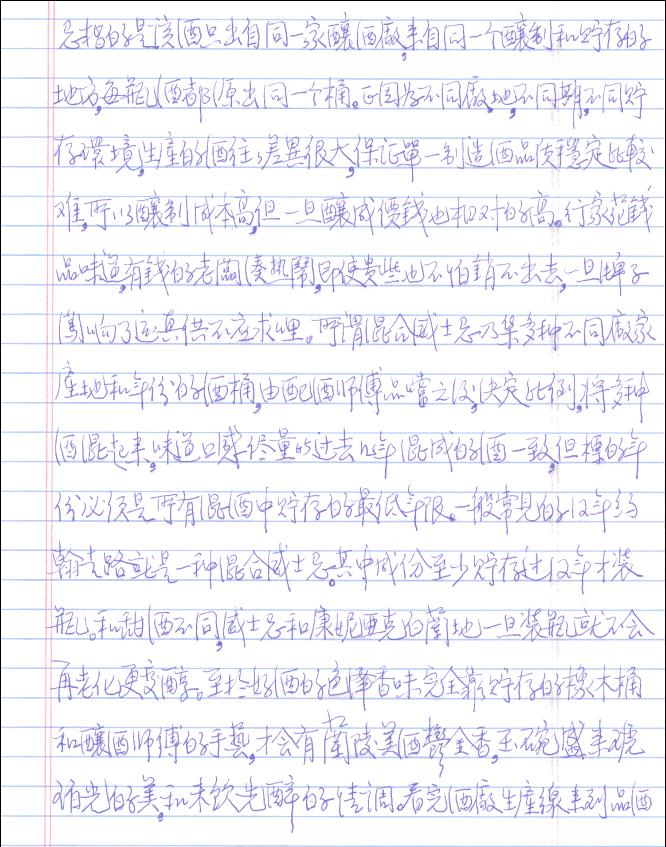 忌指的是該酒只出自同一家釀酒廠,來自同一个釀制和贮存的
地方,每瓶酒都原出同一个桶。正因为不同廠地,不同期,不同贮
存環境,生產的酒往々差異很大,保证單一制造酒品质穩定比較
难,所以釀制成本高,但一旦釀成價錢也相对的高。行家花錢
品味道,有錢的老闆湊热鬧,即使贵些也不怕銷不出去,一旦牌子
闖响了还真供不应求哩。所謂混合威士忌乃集多种不同廠家
產地和年份的酒桶,由配酒师傅品嚐之後,决定比例,将多种
酒混起来,味道口感侭量的过去12年混成的酒一致,但標的年
份必须是所有混酒中贮存的最低年限。一般常見的12年约
翰走路就是一种混合威士忌。其中成份至少贮存过12年才装
瓶。和甜酒不同,威士忌和康妮亜克白蘭地一旦装瓶就不会
再老化,更变醇。至於好酒的色澤香味完全靠贮存的橡木桶
和釀酒师傅的手藝,才会有蘭陵美酒鬱金香,玉碗盛来琥
珀光的美,和未饮先醉的情调。看完酒廠生產線来到品酒